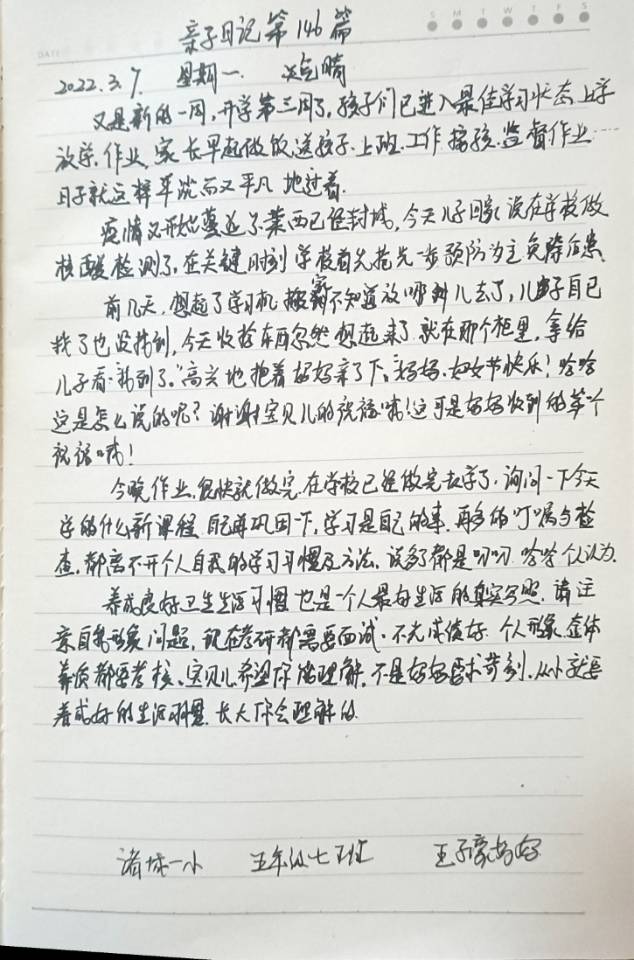 DATE:
S M T W T F S
亲子日记第146篇
2022.3.7. 星期一. 天气晴
又是新的一周,开学第三周了,孩子们已进入最佳学习状态上学
放学.作业,家长早起做饭送孩子.上班.工作接孩.监督作业……
日子就这样平淡而又平凡地过着.
疫情又开始蔓延了莱西已经封城,今天儿子回家说在学校做
核酸检测了,在关键时刻学校首先抢先一步预防为主免除后患.
前几天,想起了学习机 不知道放哪到儿去了,儿子自已
找了也没找到,今天收拾东西忽然想起来了就在那个柜里,拿给
儿子看.“找到了.”高兴地抱着妈妈亲了下、“妈妈.妇女节快乐!哈哈
这是怎么说的呢?谢谢宝贝儿的祝福哦!这可是妈妈收到的第一个
祝福哦!
今晚作业.很快就做完.在学校已经做完大半了.询问一下今天
学的什么新课程.自己再巩固一下,学习是自己的事.再多的叮嘱与检
查.都离不开个人自我的学习习惯及方法.说多了都是叨叨.哈哈个人认为.
养成良好卫生生活习惯也是一个人最好生活的真实写照.请注
意自我形象问题,现在考研都需要面试.不光成绩好.个人形象.整体
素质都要考核.宝贝儿希望你能理解.不是妈妈要求苛刻.从小就要
养成好的生活习惯.长大你会理解的.
诸城一小 五年级七班 王子豪妈妈